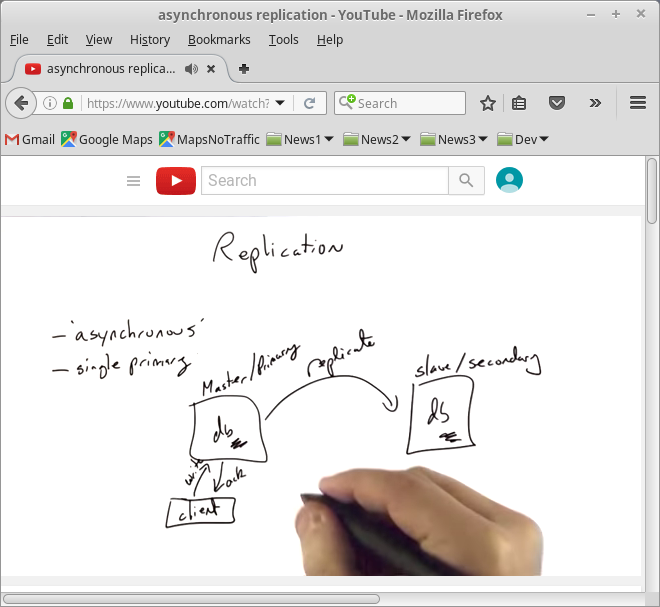 asynchronous replication - YouTube - Mozilla Firefox
File Edit View History Bookmarks Tools Help
asynchronous replica...
https://www.youtube.com/watch?
Search
Gmail Google Maps MapsNoTraffic News1 News2 News3 Dev
Search
Replication
– 'asynchronous'
– single primary
Master/Primary
replicate
slave/secondary
db
db
write
ack
client